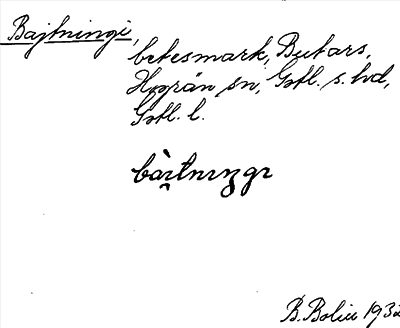 Bajtningi,
betesmark, Butars,
Hogrän sn, Gotl. s. hd,
Gotl. l.
bàɪtnɪŋgɪ
B. Bolin 1932